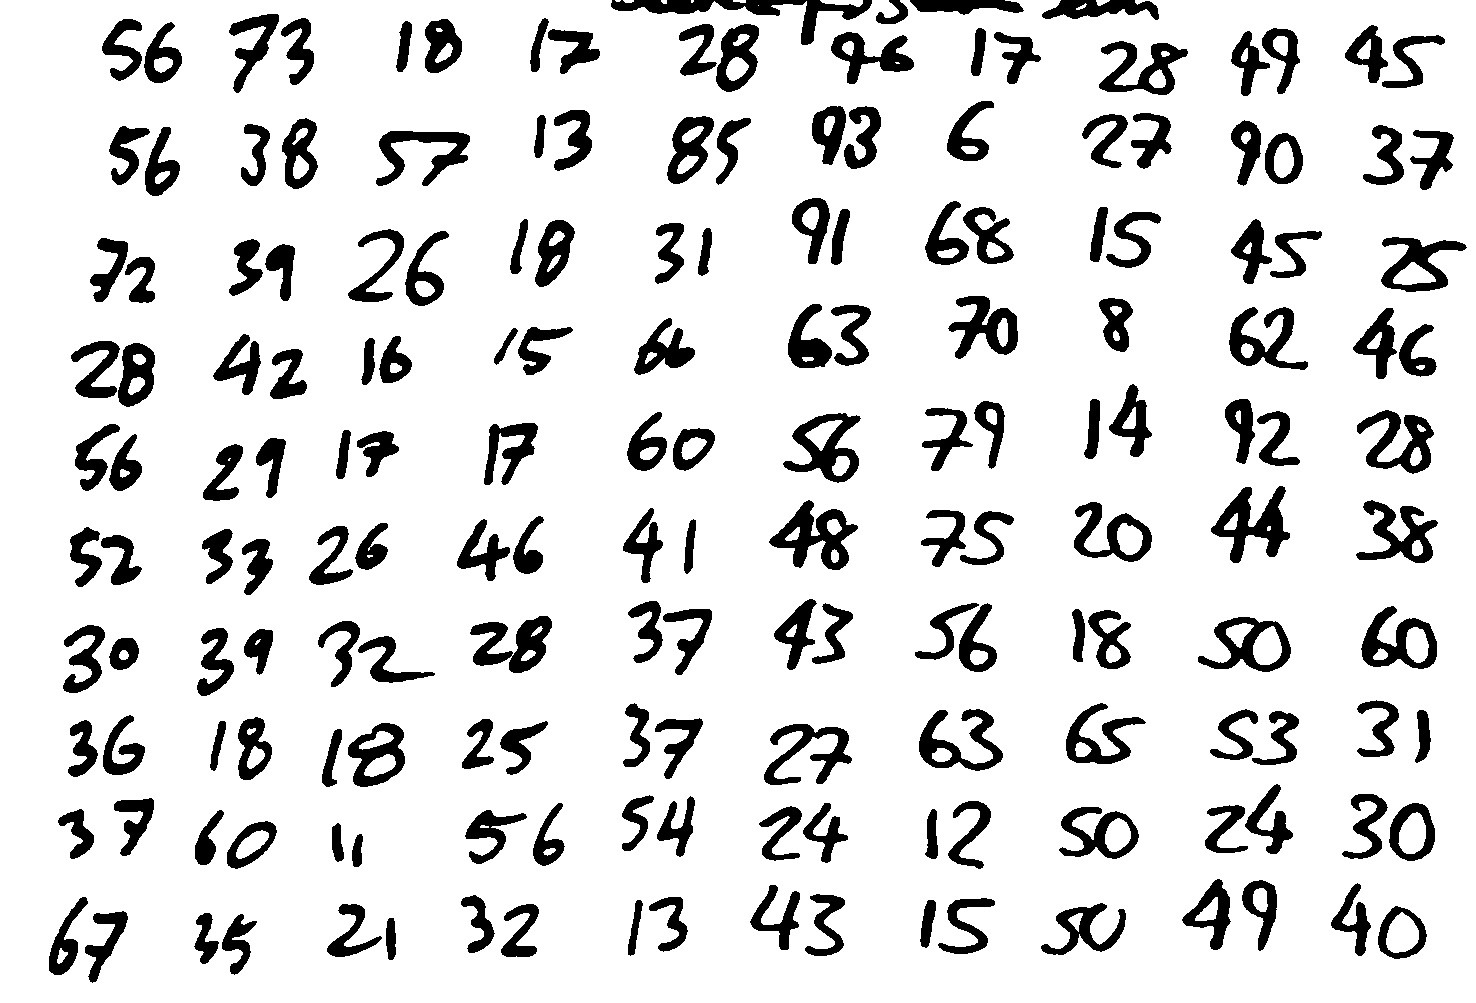 56 73 18 17 28 96 17 28 49 45
56 38 57 13 85 93 6 27 90 37
72 39 26 18 31 91 68 15 45 25
28 42 16 15 66 63 70 8 62 46
56 29 17 17 60 56 79 14 92 28
52 33 26 46 41 48 75 20 44 38
30 39 32 28 37 43 56 18 50 60
36 18 18 25 37 27 63 65 53 31
37 60 11 56 54 24 12 50 24 30
67 35 21 32 13 43 15 50 49 40